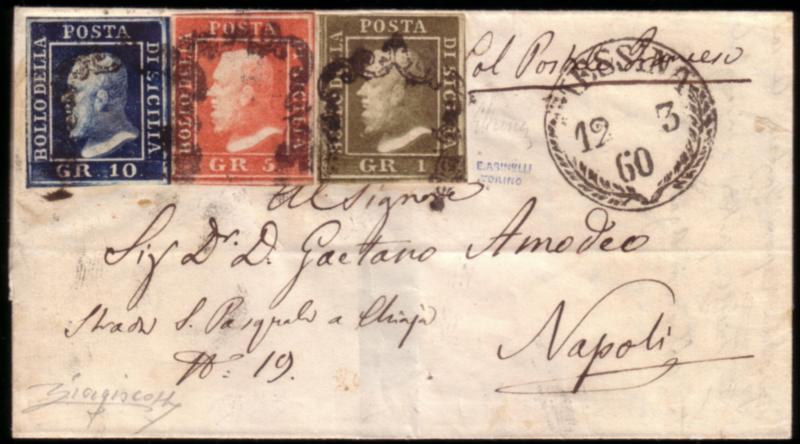 BOLLO DELLA POSTA DI SICILIA
GR. 10
BOLLO DELLA POSTA DI SICILIA
GR. 5
BOLLO DELLA POSTA DI SICILIA
GR. 1
Col Postale Francese
MESSINA
12 3
60
E. ASINELLI
TORINO
Al Signore
Sig Dr. D. Gaetano Amodeo
Strada S. Pasquale a Chiaja
No: 19.
Napoli